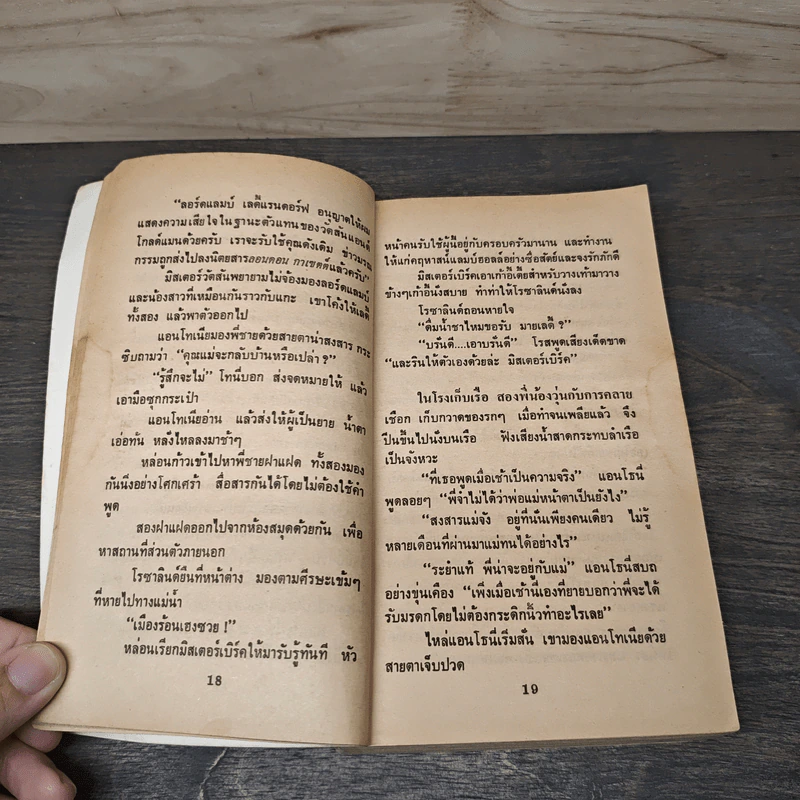 “ลอร์ดแลมบ์ เลดี้แรนดอร์ฟ อนุญาตให้ผม
แสดงความเสียใจในฐานะตัวแทนของวัดสันแอนด์
โกลด์แมนด้วยครับ เราจะรับใช้คุณดังเดิม ข่าวมรณ
กรรมถูกส่งไปลงนิตยสารลอนดอน กาเซตต์แล้วครับ”
มิสเตอร์วัตสันพยายามไม่จ้องมองลอร์ดแลมบ์
และน้องสาวที่เหมือนกันราวกับแกะ เขาโค้งให้เลดี้
ทั้งสอง แล้วพาตัวออกไป
แอนโทเนียมองพี่ชายด้วยสายตาน่าสงสาร กระ
ซิบถามว่า “คุณแม่จะกลับบ้านหรือเปล่า ?”
“รู้สึกจะไม่” โทนี่บอก ส่งจดหมายให้ แล้ว
เอามือซุกกระเป๋า
แอนโทเนียอ่าน แล้วส่งให้ผู้เป็นยาย น้ำตา
เอ่อท้น หลั่งไหลลงมาช้าๆ
หล่อนก้าวเข้าไปหาพี่ชายฝาแฝด ทั้งสองมอง
กันนิ่งอย่างโศกเศร้า สื่อสารกันได้โดยไม่ต้องใช้คำ
พูด
สองฝาแฝดออกไปจากห้องสมุดด้วยกัน เพื่อ
หาสถานที่ส่วนตัวภายนอก
โรซาลินด์ยืนที่หน้าต่าง มองตามศีรษะเข้มๆ
ที่หายไปทางแม่น้ำ
“เมืองร้อนเฮงซวย !”
หล่อนเรียกมิสเตอร์เบิร์คให้มารับรู้ทันที หัว
18
หน้าคนรับใช้ผู้นี้อยู่กับครอบครัวมานาน และทำงาน
ให้แก่คฤหาสน์แลมบ์ฮอลล์อย่างซื่อสัตย์และจงรักภักดี
มิสเตอร์เบิร์คเอาเก้าอี้เตี้ยสำหรับวางเท้ามาวาง
ข้างๆเก้าอี้นั่งสบาย ทำท่าให้โรซาลินด์นั่งลง
โรซาลินด์ถอนหายใจ
“ดื่มน้ำชาไหมขอรับ มายเลดี้ ?”
“บรั่นดี...เอาบรั่นดี” โรสพูดเสียงเด็ดขาด
“และรินให้ตัวเองด้วยล่ะ มิสเตอร์เบิร์ค”
ในโรงเก็บเรือ สองพี่น้องวุ่นกับการคลาย
เชือก เก็บกวาดของรกๆ เมื่อทำจนเพลียแล้ว จึง
ปีนขึ้นไปนั่งบนเรือ ฟังเสียงน้ำสาดกระทบลำเรือ
เป็นจังหวะ
“ที่เธอพูดเมื่อเช้าเป็นความจริง” แอนโธนี่
พูดลอยๆ “พี่จำไม่ได้ว่าพ่อแม่หน้าตาเป็นยังไง”
“สงสารแม่จัง อยู่ที่นั่นเพียงคนเดียว ไม่รู้
หลายเดือนที่ผ่านมาแม่ทนได้อย่างไร”
“ระยำแท้ พี่น่าจะอยู่กับแม่” แอนโธนี่สบถ
อย่างขุ่นเคือง “เพิ่งเมื่อเช้านี้เองที่ยายบอกว่าพี่จะได้
รับมรดกโดยไม่ต้องกระดิกนิ้วทำอะไรเลย”
ไหล่แอนโธนี่เริ่มสั่น เขามองแอนโทเนียด้วย
สายตาเจ็บปวด
19